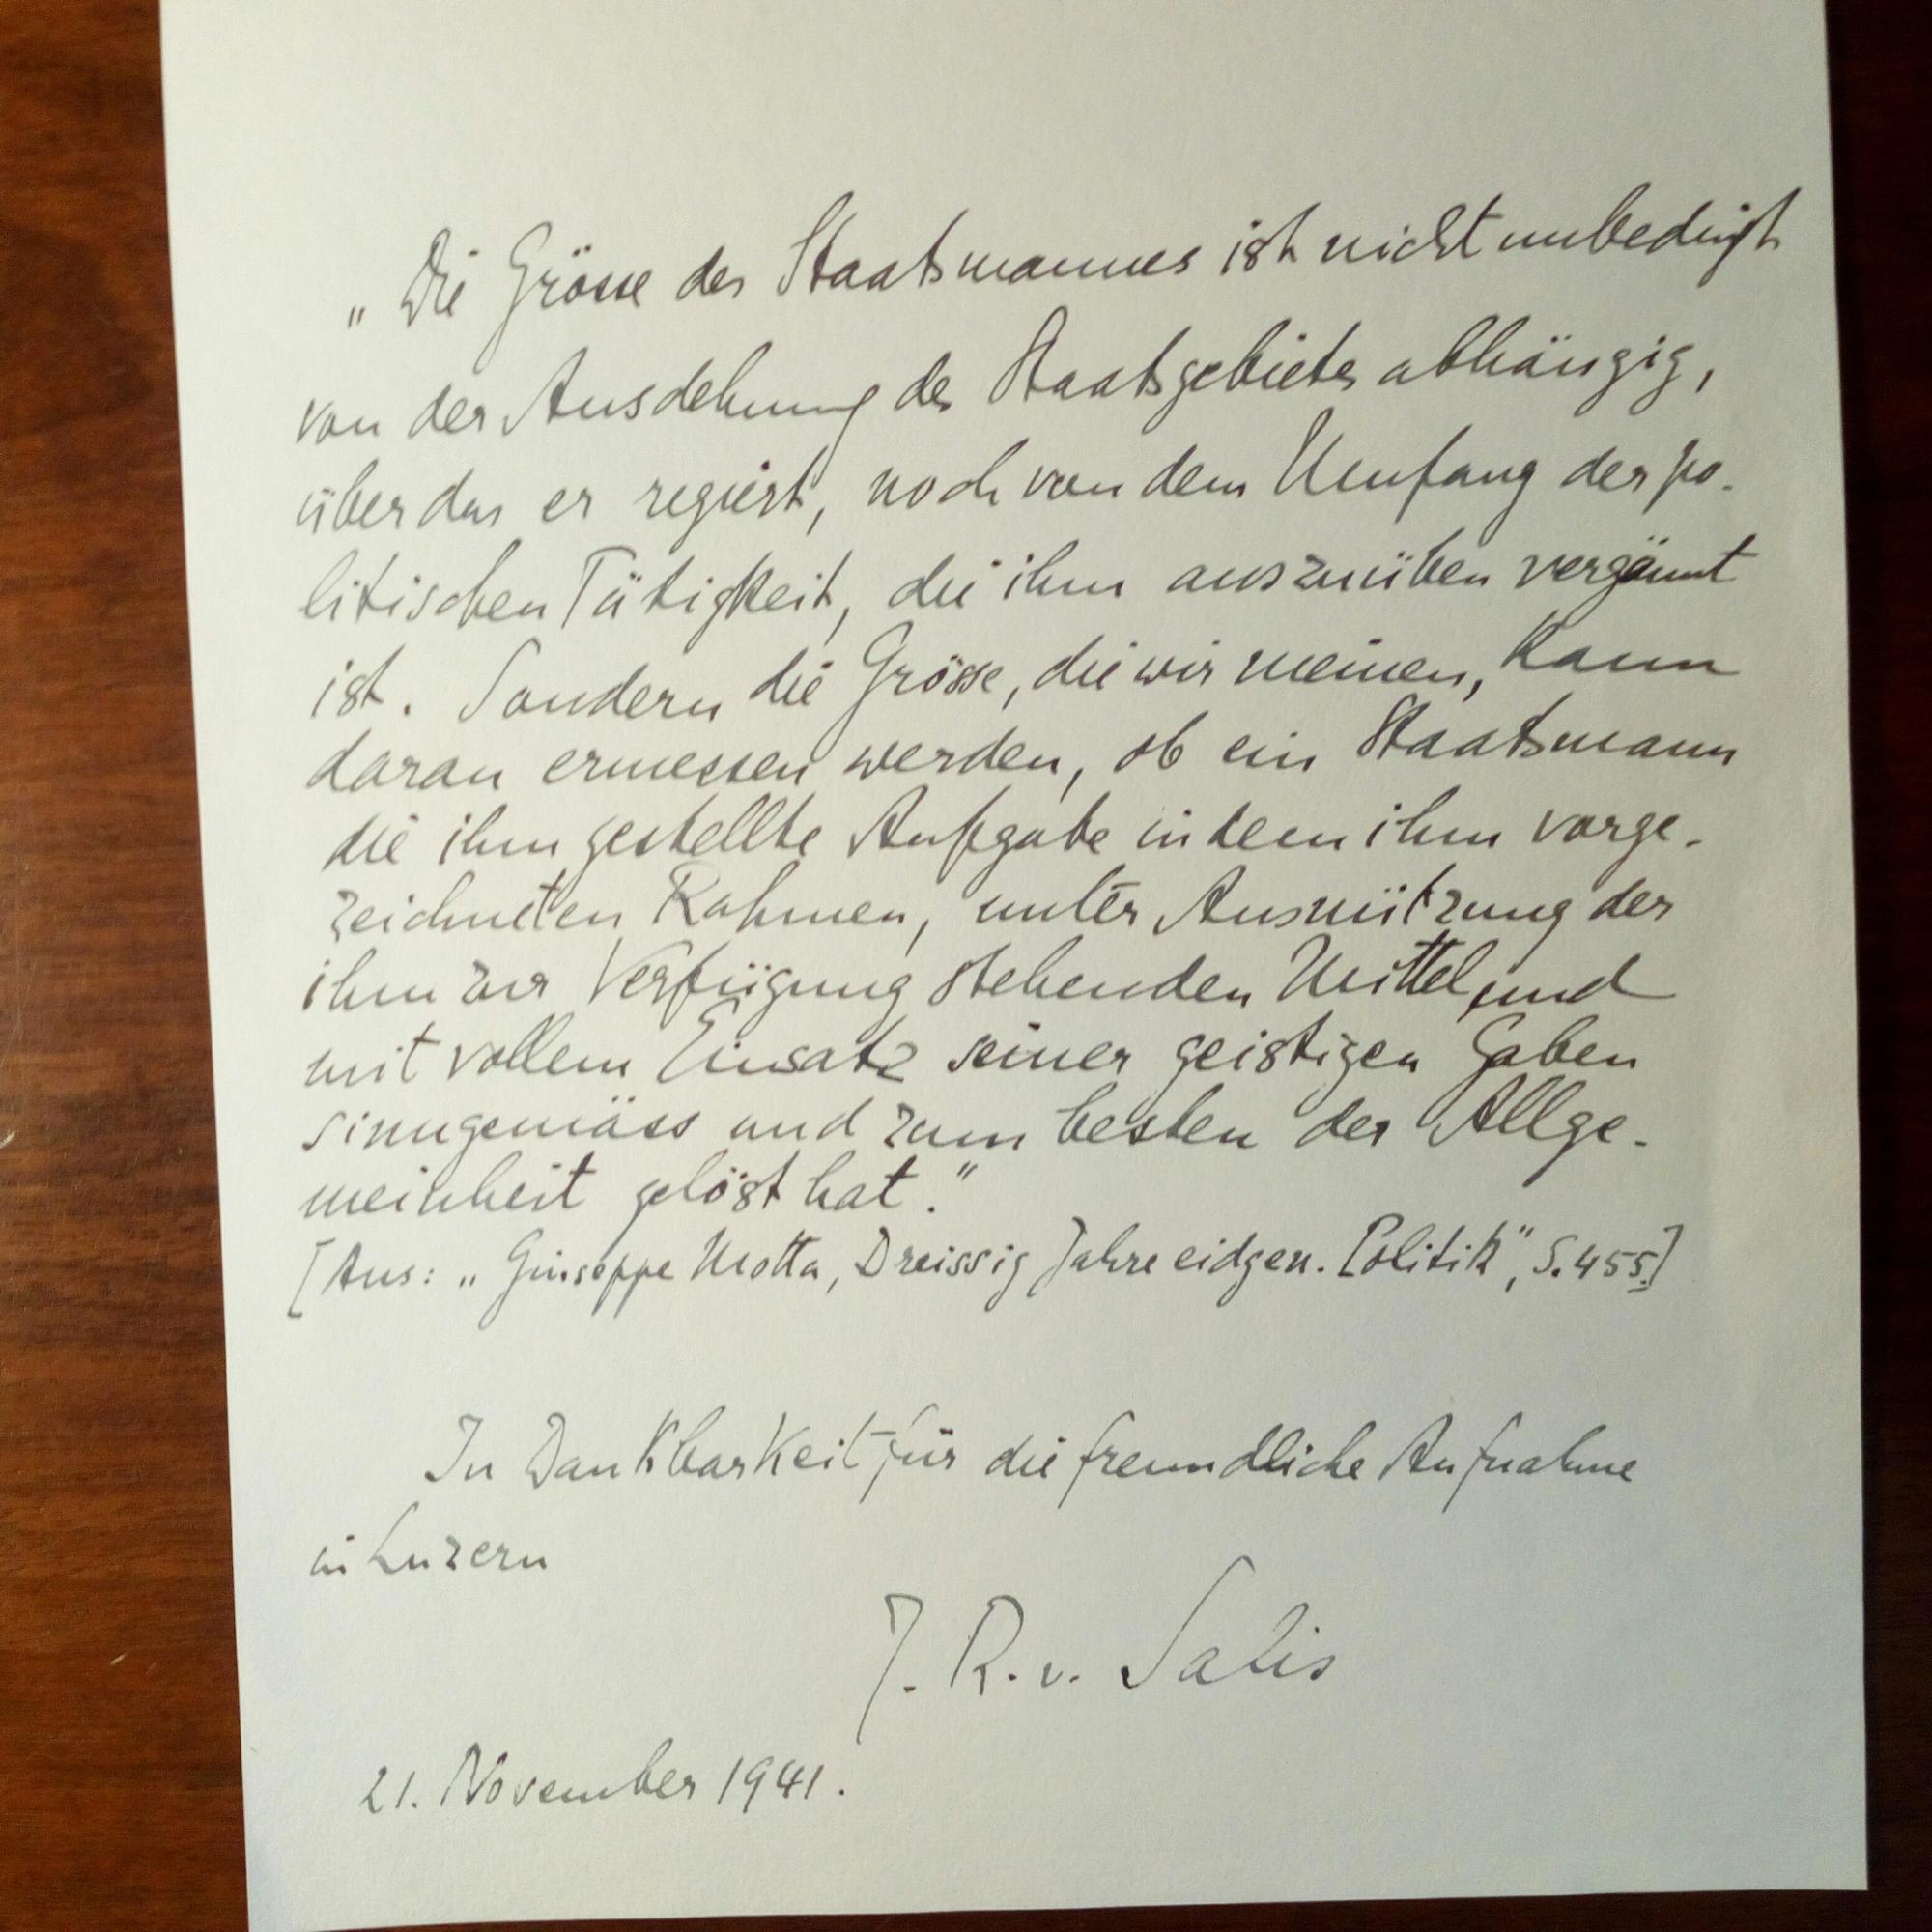 „Die Grösse des Staatsmannes ist nicht unbedingt
von der Ausdehnung des Staatsgebietes abhängig,
über das er regiert, noch von dem Umfang der po-
litischen Tätigkeit, die ihm auszuüben vergönnt
ist. Sondern die Grösse, die wir meinen, kann
daran ermessen werden, ob ein Staatsmann
die ihm gestellte Aufgabe in dem ihm vorge-
zeichneten Rahmen, unter Ausnützung der
ihm zur Verfügung stehenden Mittel, und
mit vollem Einsatz seiner geistigen Gaben
sinngemäss und zum besten der Allge-
meinheit gelöst hat."
[Aus: „Giuseppe Motta, Dreissig Jahre eidgen. Politik", S. 455.]
In Dankbarkeit für die freundliche Aufnahme
in Luzern
J. R. v. Salis
21. November 1941.